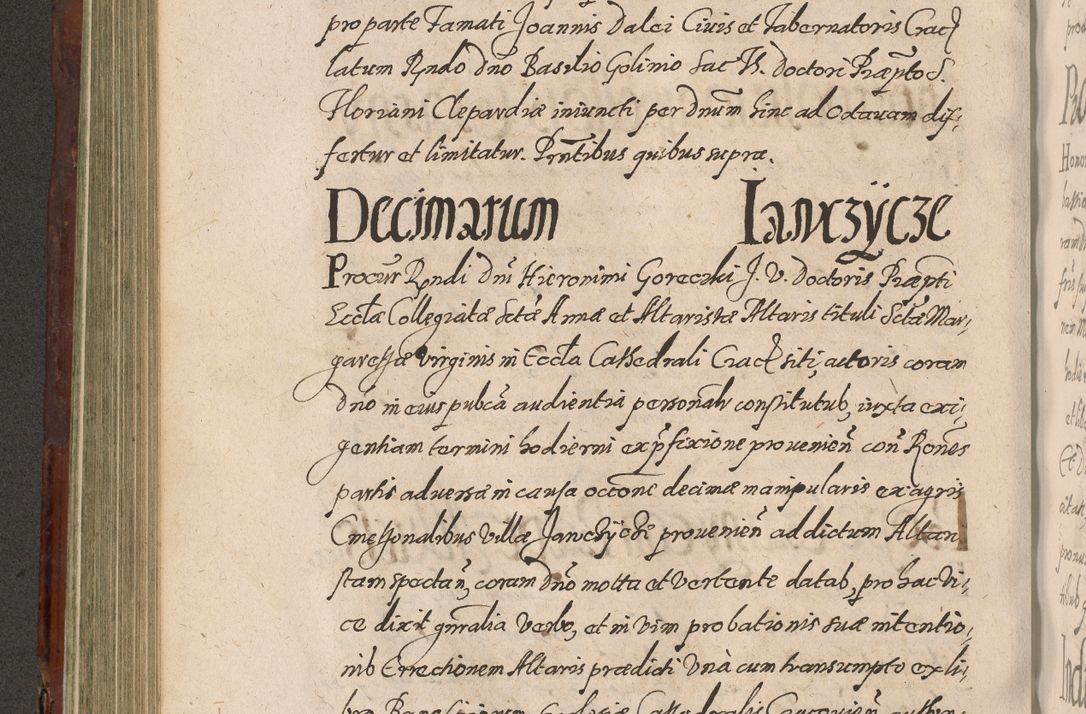 pro parte Famati Joannis Dalei Ciuis et Tabernatoris Crac
latum Rndo dno Basilio Golinio Sac Th. Doctori Præpto S.
Floriani Clepardiæ iniuncti per Dnum hinc ad Octauam dif,
fertur et limitatur. Prntibus quibus supra.
Decimarum Janczÿcze
Procur Rndi Dni Hieronimi Goreczki J. V. Doctoris Præpti
Ecclæ Collegiatæ Sctæ Annæ et Altaristæ Altaris tituli Sctæ Mar,
garethæ Virginis in Eccla Cathedrali Crac siti, actoris coram
Dno in eius pubca audientia personalr constitutus, iuxta exi,
gentiam termini hodierni ex pfixione prouenien con Rones
partis aduersæ in causa occone decimæ manipularis ex agris
Cmethonalibus Villæ Janczÿcze prouenien ad dictum Altari
stam spectan, coram Dno motta et Vertente datas, pro hac Vi,
ce dixit gnralia Verbo, et in Vim probationis suæ intentio,
nis Errectionem Altaris prædicti Vnà cum transumpto ex li,